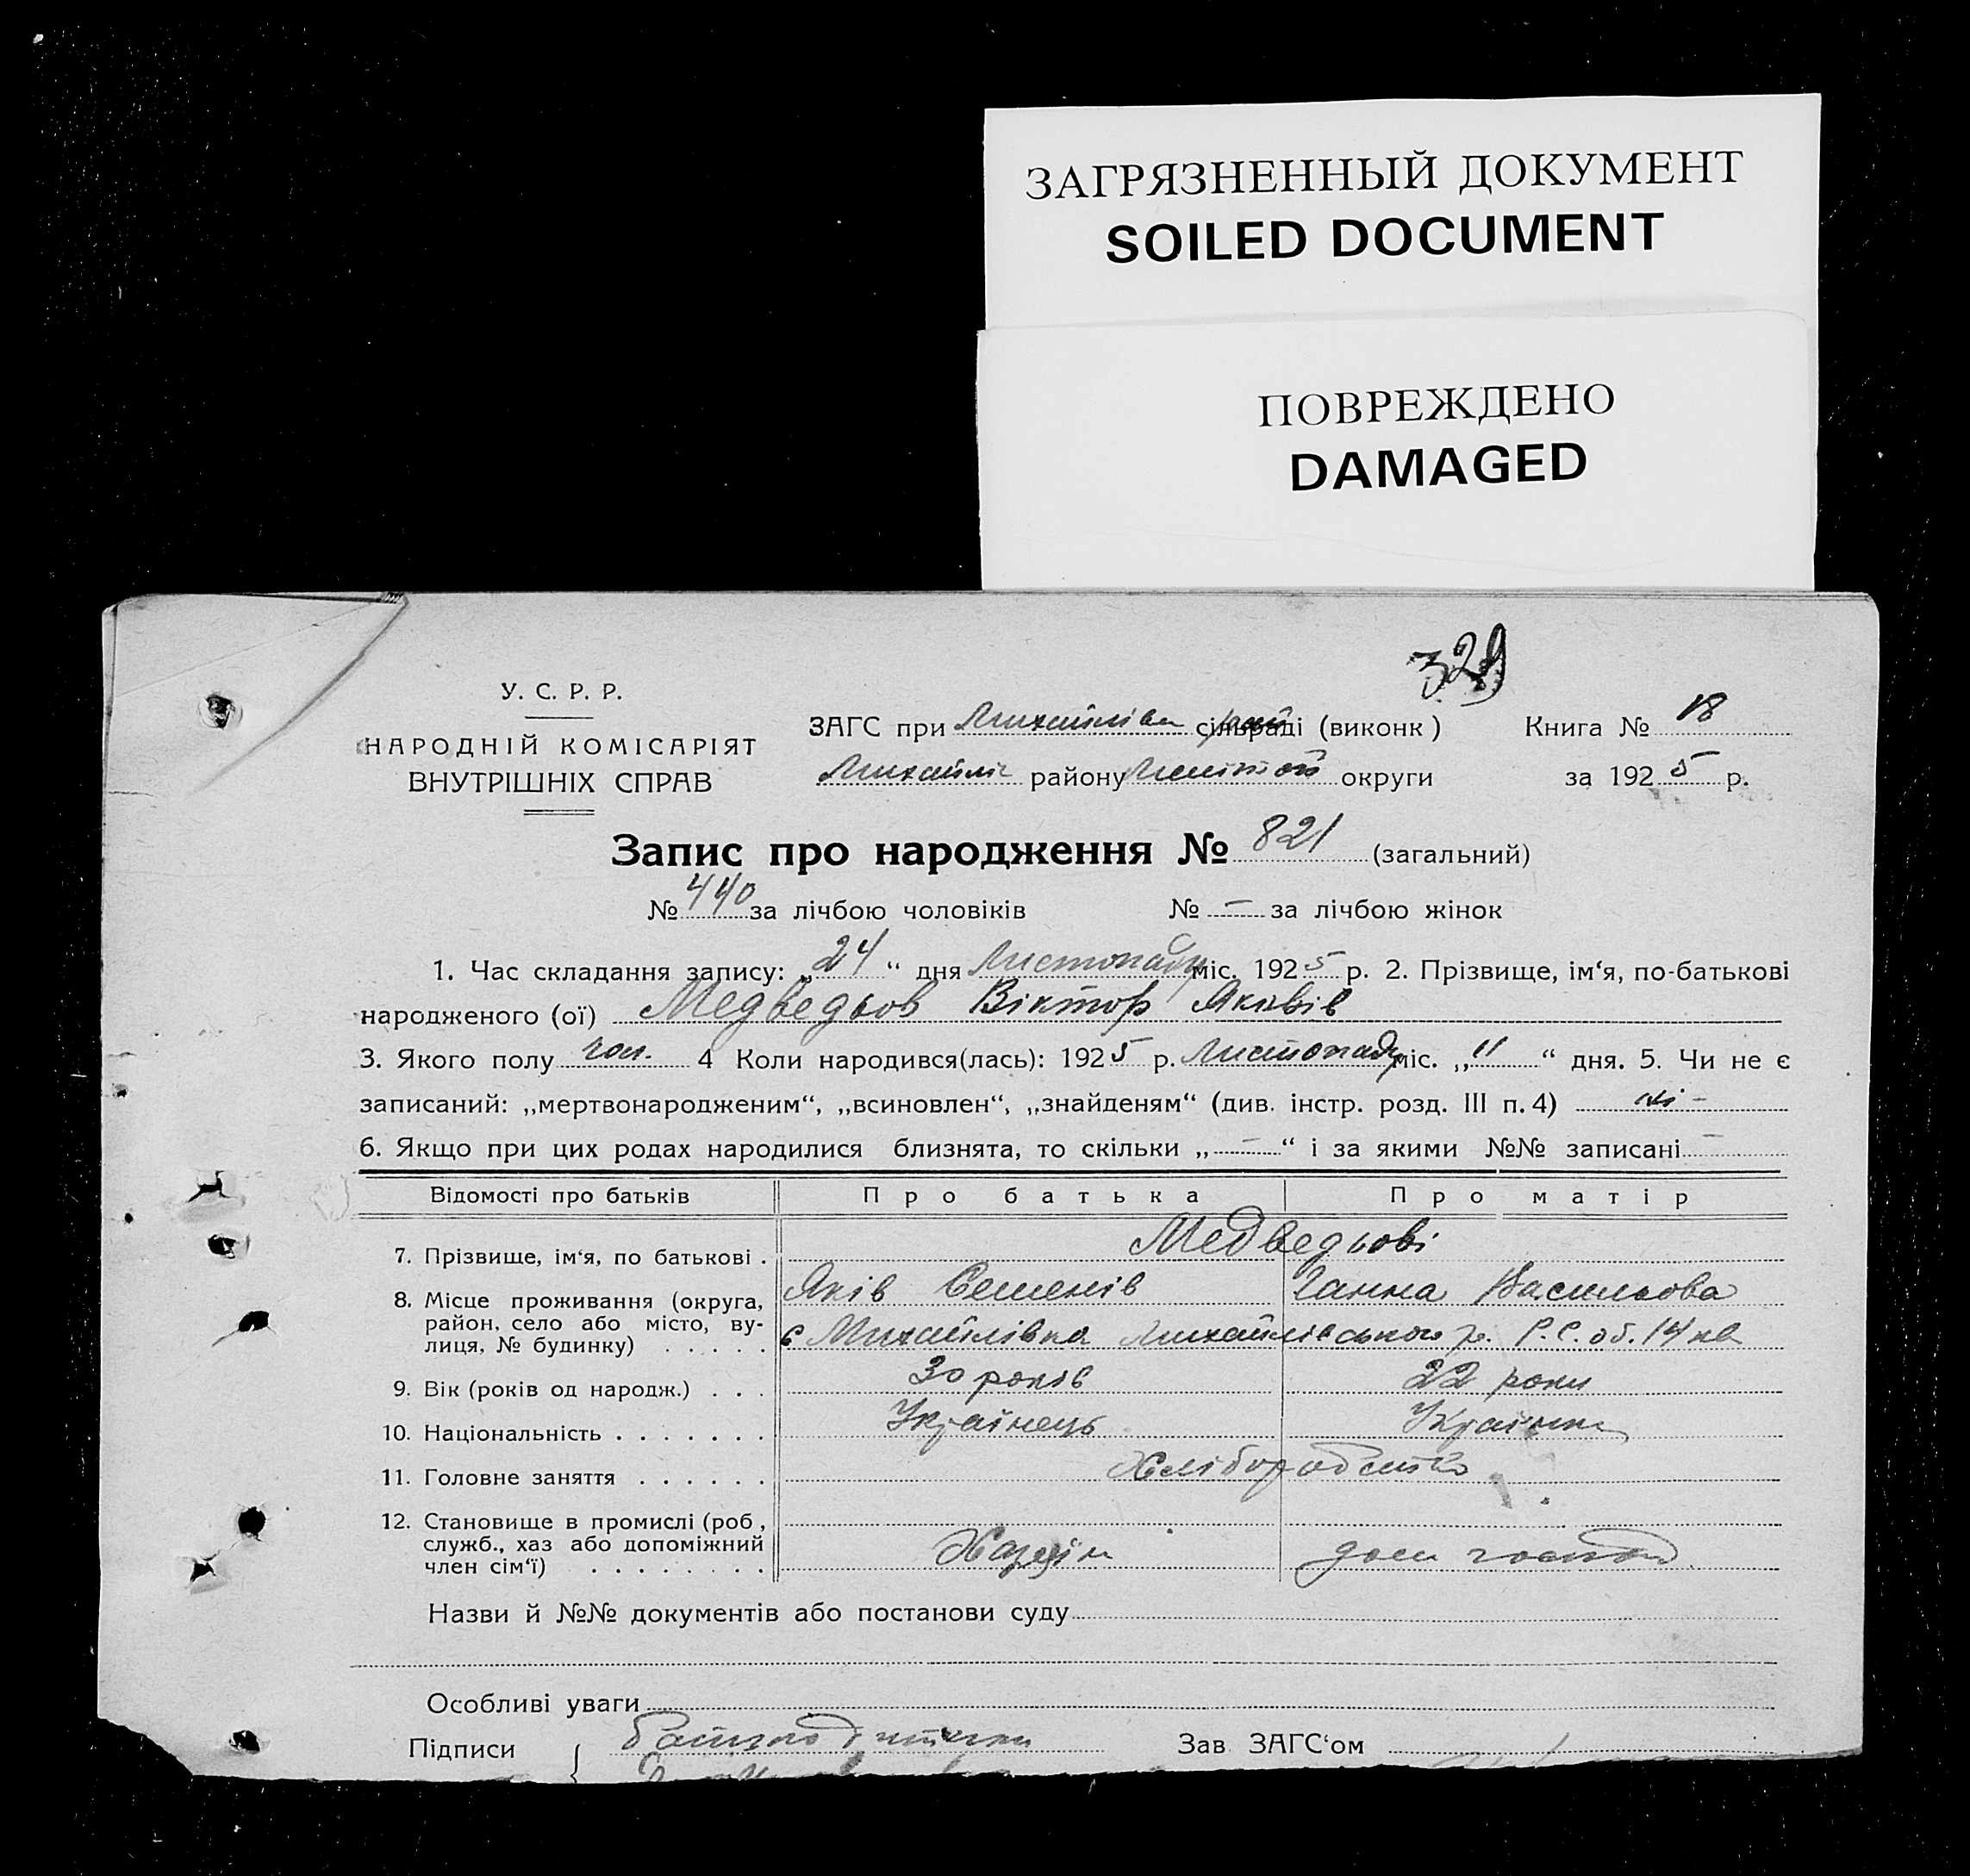 ЗАГРЯЗНЕННЫЙ ДОКУМЕНТ
SOILED DOCUMENT
ПОВРЕЖДЕНО
DAMAGED
329
У. С. Р. Р.
НАРОДНІЙ КОМІСАРІЯТ
ВНУТРІШНІХ СПРАВ
ЗАГС при Михайлівк сільраді (виконк) Книга № 18
Михайлів району округи за 1925 р.
Запис про народження № 821 (загальний)
№ 440 за лічбою чоловіків № — за лічбою жінок
1. Час складання запису: „24“ дня Листопаду міс. 1925 р. 2. Прізвище, ім‘я, по-батькові
народженого (ої) Медведьов Віктор Яковів
3. Якого полу чол. 4 Коли народився(лась): 1925 р. Листопаду міс. „11“ дня. 5. Чи не є
записаний: „мертвонародженим“, „всиновлен“, „знайденям“ (див. інстр. розд. III п. 4) ні —
6. Якщо при цих родах народилися близнята, то скільки „—“ і за якими №№ записані —
Відомості про батьків Про батька Про матір
7. Прізвище, ім‘я, по батькові . Медведьові
Яків Семенів Ганна Васильова
8. Місце проживання (округа,
район, село або місто, ву-
лиця, № будинку) . . . . . с Михайлівка Михайлівського р. 14 кв
9. Вік (років од народж.) . . . 30 років 22 роки
10. Національність . . . . . . . Українець Українка
11. Головне заняття . . . . . . Хліборобство
12. Становище в промислі (роб,
служб., хаз або допоміжний
член сім‘ї) . . . . . . . . Хазяїн дом господ.
Назви й №№ документів або постанови суду
Особливі уваги
Підписи Зав ЗАГС‘ом